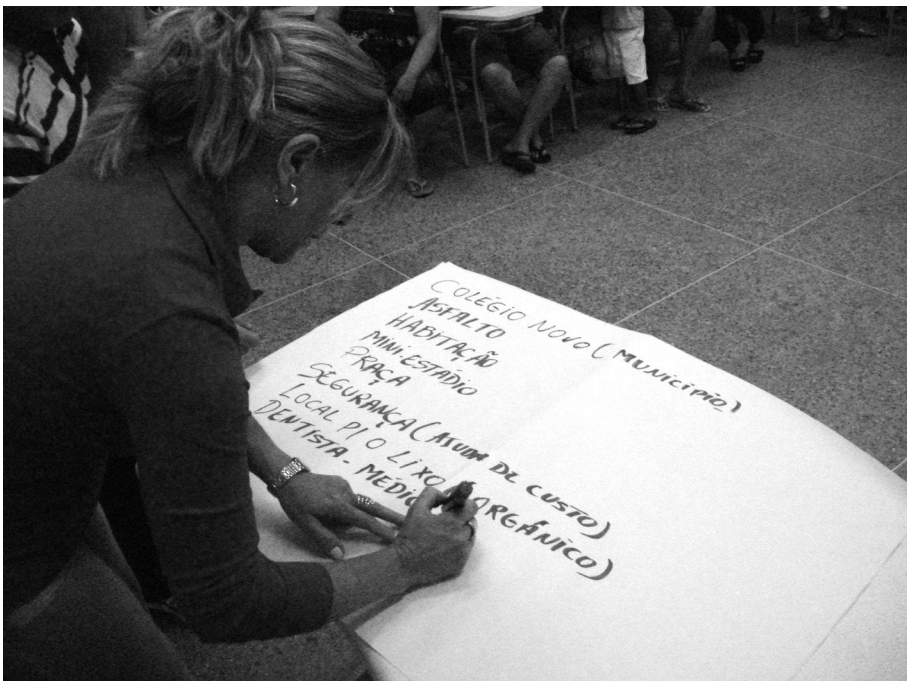 COLÉGIO NOVO (MUNICIPIO)
ASFALTO
HABITAÇÃO
MINI-ESTÁDIO
PRAÇA
SEGURANÇA (AJUDA DE CUSTO)
LOCAL P/ O LIXO ORGÂNICO)
DENTISTA - MÉDIC